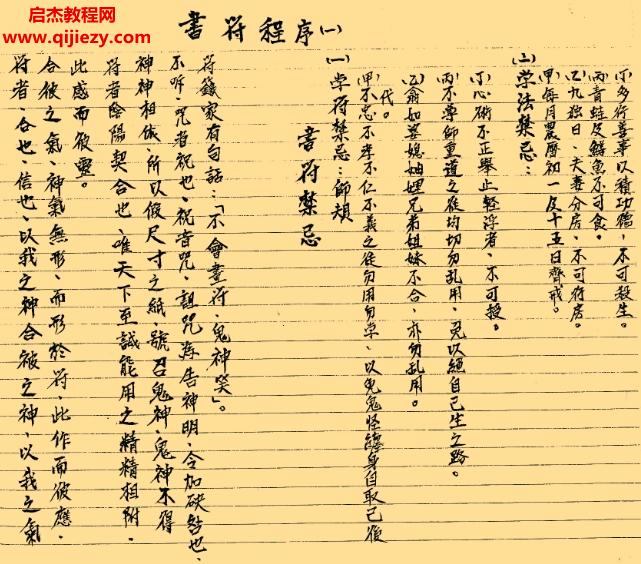 启杰教程网
www.qijiezy.com
書符程序(一)
符者、合也、信也、以我之神合彼之神、以我之氣
合彼之氣、神氣無形、而形於符、此作而彼應、
此感而彼靈。
符者陰陽契合也、唯天下至誠能用之精精相附、
神神相依、所以假尺寸之紙、號召鬼神、鬼神不得
不听、咒者祝也、祝音咒、詛咒為告神明、令加砄咎也、
符籙家有句話：「不會畫符、鬼神笑」。
書符禁忌
(一)学符禁忌：师規
(甲)不忠、不孝不仁不義之徒勿用勿学、以免鬼怪纏身自取己後
代。
(乙)翁如婆媳妯娌兄弟姐妹不合、亦勿乱用。
(丙)不尊師重道之徒均切勿乱用、免以絕自己生之路。
(丁)心術不正舉止輕浮者、不可授。
(二)学法禁忌：
(甲)每月農曆初一及十五日齊戒。
(乙)九独日、夫妻分房、不可行房。
(丙)青蛙及鱔魚不可食。
(丁)多行善事以積功德、不可殺生。